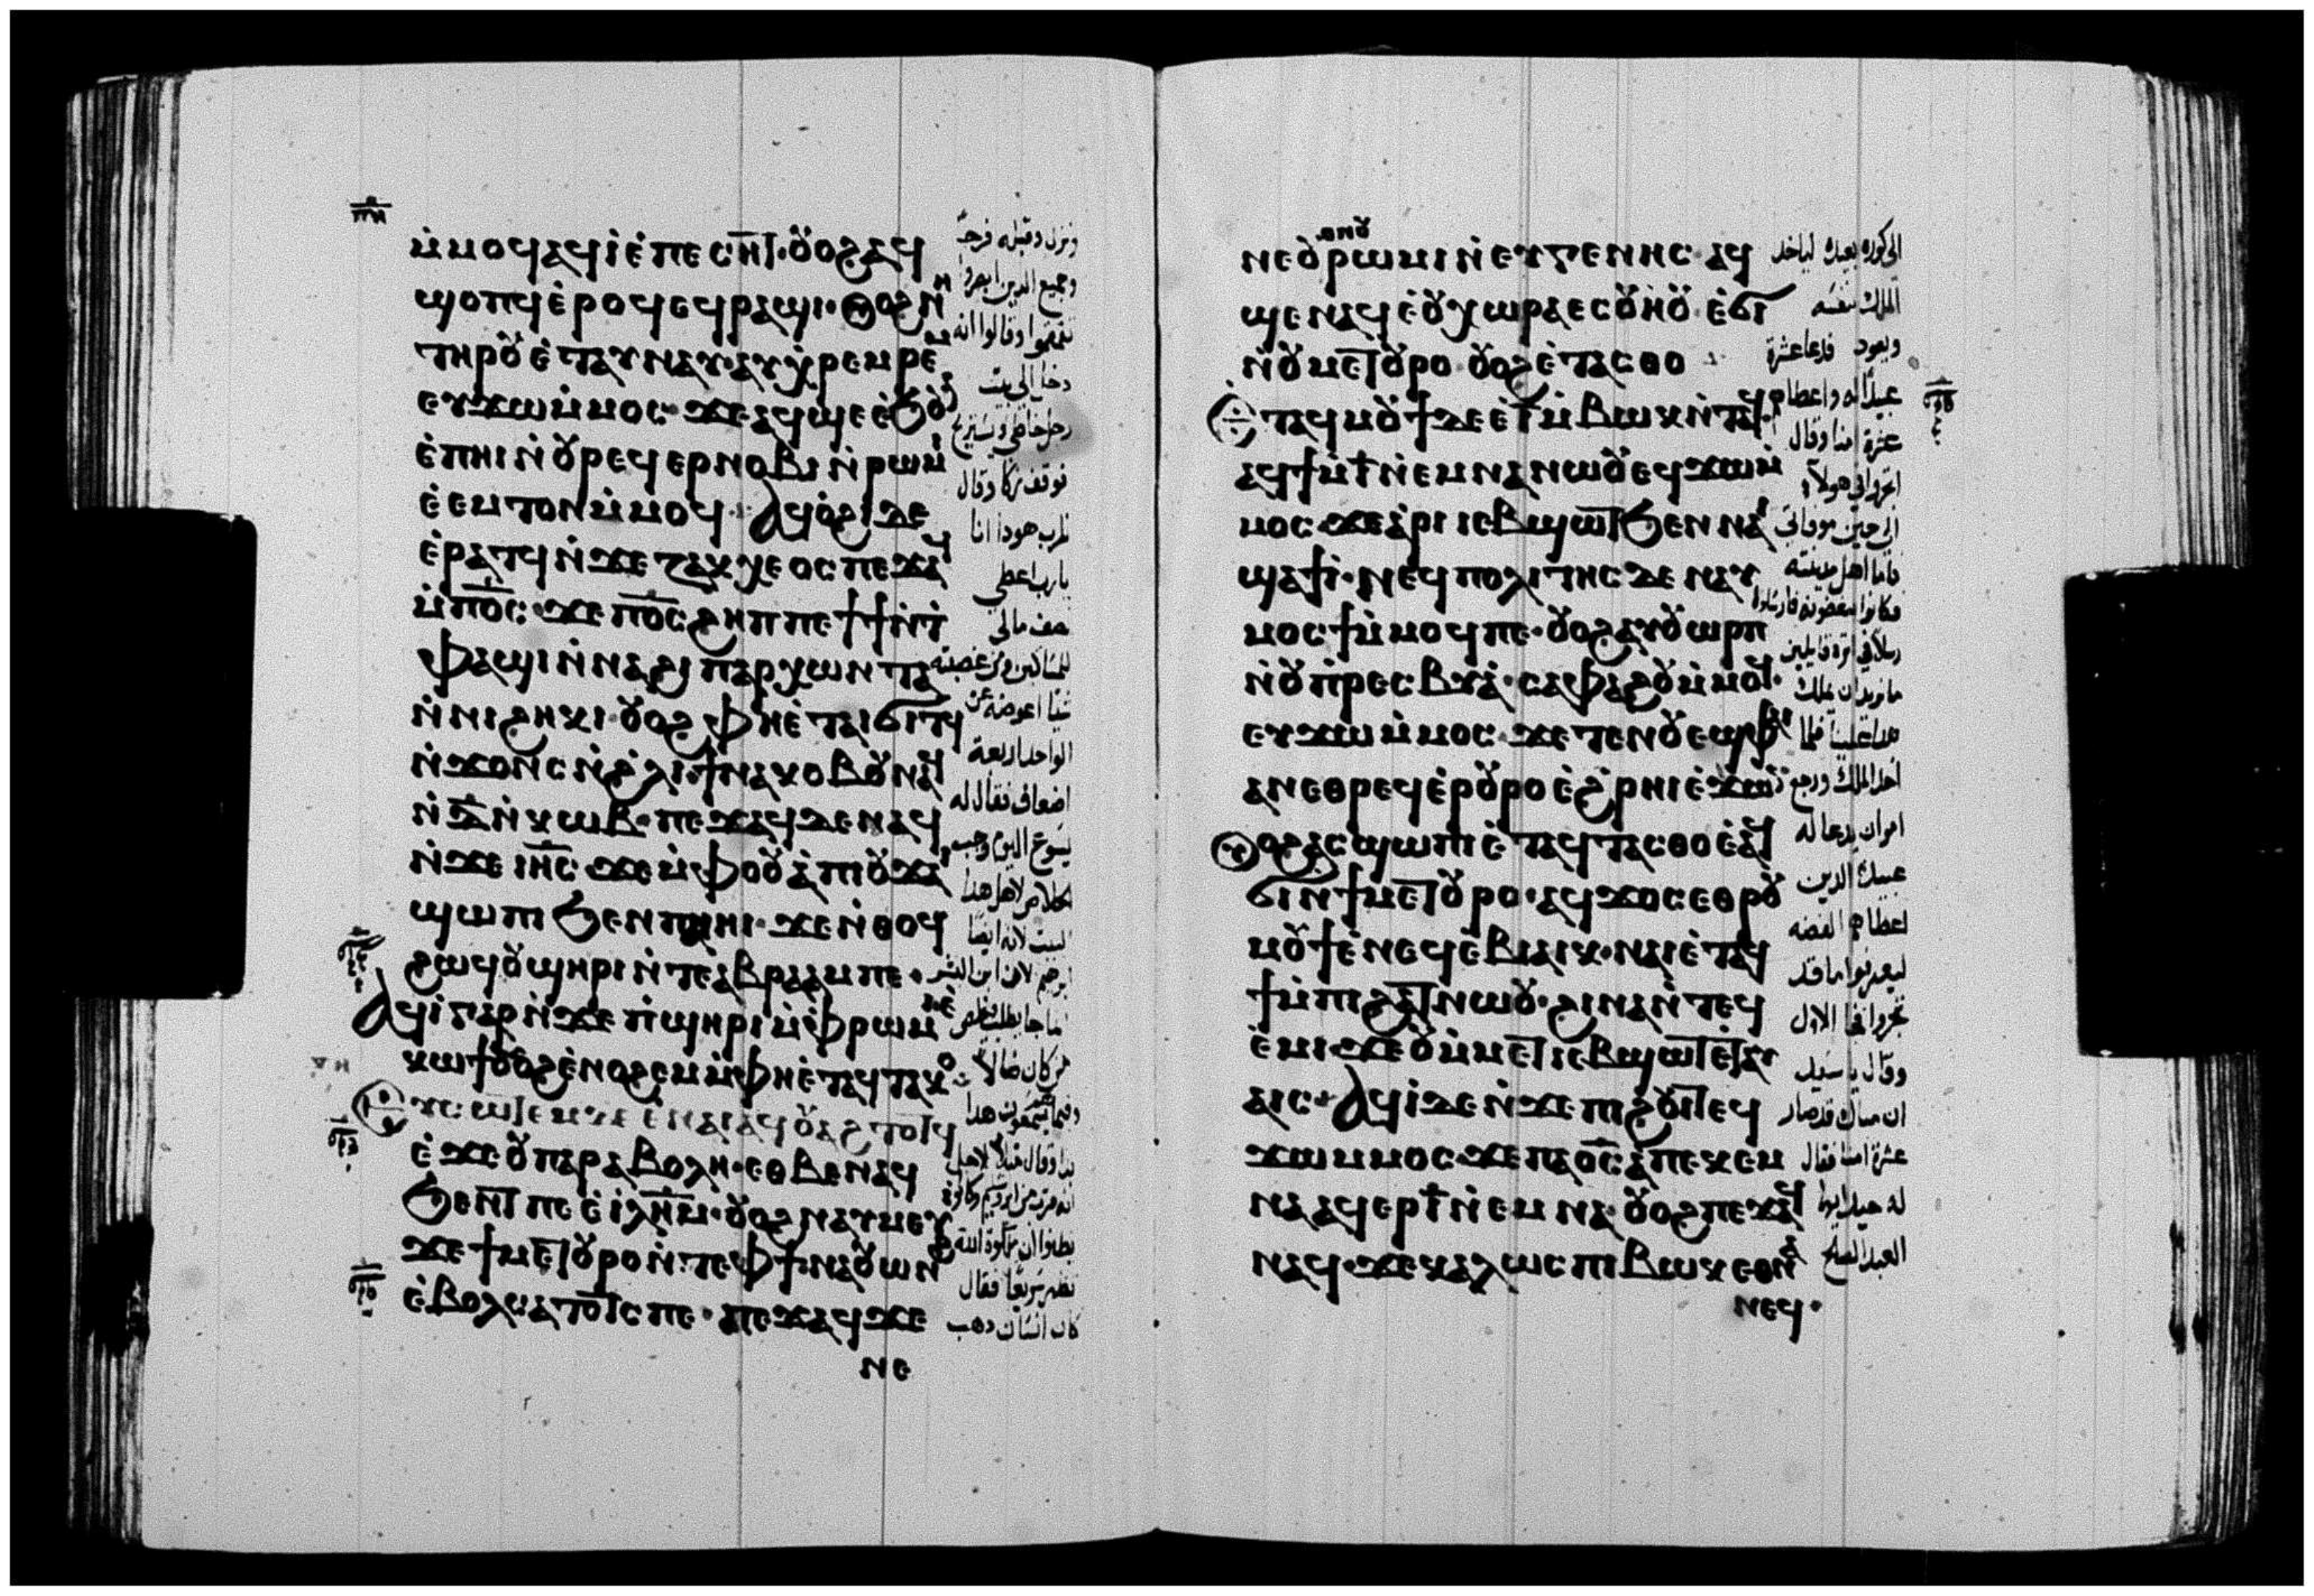 ⲡⲏ
ⲙ̇ⲙⲟϥ ⲁϥⲓ̀ ⲉ̀ⲡⲉⲥⲏⲧ· ⲟⲩⲟϩ ⲁϥ
ϣⲟⲡϥ ⲉ̀ⲣⲟϥ ⲉϥⲣⲁϣⲓ· ⲟⲩⲟϩ ⲛⲏ
ⲧⲏⲣⲟⲩ ⲉ̀ⲧⲁⲩⲛⲁⲩ ⲁⲩⲭ̇ⲣⲉⲙⲣⲉⲙ
ⲉⲩϫⲱ ⲙ̇ⲙⲟⲥ· ϫⲉ ⲁϥϣⲉ ⲉ̀ϧⲟⲩⲛ
ⲉ̀ⲡⲏⲓ ⲛ̇ⲟⲩⲣⲉϥⲉⲣⲛⲟⲃⲓ ⲛ̇ⲣⲱⲙⲓ
ⲉ̀ⲉⲙⲧⲟⲛ ⲙ̇ⲙⲟϥ· ⲁϥⲟ̀ϩⲓ ⲇⲉ
ⲉ̀ⲣⲁⲧϥ ⲛ̇ϫⲉ ⲍⲁⲕⲭⲉⲟⲥ ⲡⲉϫⲁϥ
ⲙ̇ⲡⲟ̅ⲥ̅· ϫⲉ ⲡⲟ̅ⲥ̅ ϩⲏⲡⲡⲉ ϯϯ ⲛ̇ⲧ
ⲫⲁϣⲓ ⲛ̇ⲛⲁϩⲩⲡⲁⲣⲭⲱⲛⲧⲁ
ⲛ̇ⲛⲓϩⲏⲕⲓ· ⲟⲩⲟϩ ⲫⲏ ⲉ̀ⲧⲁⲓϭⲓⲧϥ
ⲛ̇ϫⲟⲛⲥ ⲛ̇ϩ̇ⲗⲓ ϯⲛⲁⲕⲟⲃⲟⲩ ⲛⲁϥ
ⲛ̇ⲇ̅ ⲛ̇ⲕⲱⲃ· ⲡⲉϫⲁϥ ⲇⲉ ⲛⲁϥ
ⲛ̇ϫⲉ ⲓⲏ̅ⲥ̅ ϫⲉ ⲙ̇ⲫⲟⲟⲩ ⲁ̀ ⲡⲓⲟⲩϫⲁⲓ
ϣⲱⲡⲓ ϧⲉⲛ ⲡⲁⲓⲏⲓ· ϫⲉ ⲛ̇ⲑⲟϥ
ϩⲱϥ ⲟⲩϣⲏⲣⲓ ⲛ̇ⲧⲉ ⲁ̀ⲃⲣⲁⲁⲙ ⲡⲉ·
ⲁϥⲓ̀ ⲅⲁⲣ ⲛ̇ϫⲉ ⲡ̇ϣⲏⲣⲓ ⲙ̇ⲫⲣⲱⲙⲓ ⲉ̀
ⲕⲱϯ ⲟⲩⲟϩ ⲉ̀ⲛⲟϩⲉⲙ ⲙ̇ⲫⲏ ⲉ̀ⲧⲁϥⲧⲁⲕⲟ
ⲉⲩⲥⲱⲧⲉⲙ ⲇⲉ ⲉ̀ⲛⲁⲓ ⲁϥⲟⲩⲁϩⲧⲟⲧϥ
ⲉ̀ϫⲉ ⲟⲩⲡⲁⲣⲁⲃⲟⲗⲏ· ⲉⲑⲃⲉ ⲛⲁϥ
ϧⲉⲛⲧ ⲡⲉ ⲉ̀ⲓ̇ⲗ̅ⲏ̅ⲙ̅· ⲟⲩⲟϩ ⲛⲁⲩⲙⲉⲩⲓ
ϫⲉ ϯⲙⲉⲧⲟⲩⲣⲟ ⲛ̇ⲧⲉ ⲫϯ· ⲛⲁⲟⲩⲱⲛϩ
ⲉ̀ⲃⲟⲗ ⲥⲁⲧⲟⲧⲥ ⲡⲉ· ⲡⲉϫⲁϥ ϫⲉ
ⲛⲉ
ونزل وقبله فرحًا
وجميع الدين ابصروا
تقمقموا وقالوا انه
دخل الى بيت
رجل خاطي ويستريح
فوقف زكا وقال
للرب هودا انا
يا رب اعطي
نصف مالي
للمساكين ومن غصبته
شيًا اعوضه عن
الواحد اربعة
اضعاف فقال له
يسوع اليوم وجب
الخلاص لاهل هدا
البيت لانه ايضًا
ⲛⲉ ⲟⲩⲟⲛ ⲟⲩⲣⲱⲙⲓ ⲛ̇ⲉⲩⲅⲉⲛⲏⲥ ⲁϥ
ϣⲉⲛⲁϥ ⲉ̀ⲟⲩⲭⲱⲣⲁ ⲉⲥⲟⲩⲏⲟⲩ ⲉ̀ϭⲓ
ⲛ̇ⲟⲩⲙⲉⲧⲟⲩⲣⲟ ⲟⲩⲟϩ ⲉ̀ⲧⲁⲥⲑⲟ
ⲉ̀ⲧⲁϥⲙⲟⲩϯ ⲇⲉ ⲉ̀ⲓ̅ ⲙ̇ⲃⲱⲕ ⲛ̇ⲧⲁϥ
ⲁϥϯ ⲙ̇ⲓ̅ ⲛ̇ⲉⲙⲛⲁ ⲛⲱⲟⲩ ⲉϥϫⲱ ⲙ̇
ⲙⲟⲥ ϫⲉ ⲁ̀ⲣⲓⲓⲉⲃϣⲱⲧ ϧⲉⲛ ⲛⲁⲓ
ϣⲁϯⲓ̀· ⲛⲉϥⲡⲟⲗⲓⲧⲏⲥ ⲇⲉ ⲛⲁⲩ
ⲙⲟⲥϯ ⲙ̇ⲙⲟϥ ⲡⲉ· ⲟⲩⲟϩ ⲁⲩⲟⲩⲱⲣⲡ
ⲛ̇ⲟⲩⲡ̇ⲣⲉⲥⲃⲩⲁ̀· ⲥⲁⲫⲁϩⲟⲩ ⲙ̇ⲙⲟϥ·
ⲉⲩϫⲱ ⲙ̇ⲙⲟⲥ· ϫⲉ ⲧⲉⲛⲟⲩⲉϣ ⲫⲁⲓ
ⲁⲛ ⲉⲑⲣⲉϥⲉ̀ⲣⲟⲩⲣⲟ ⲉ̀ϩ̇ⲣⲏⲓ ⲉ̀ϫⲱⲛ
ⲟⲩⲟϩ ⲁⲥϣⲱⲡⲓ ⲉ̀ⲧⲁϥⲧⲁⲥⲑⲟ ⲉ̀ⲁϥ
ϭⲓ ⲛ̇ϯⲙⲉⲧⲟⲩⲣⲟ· ⲁϥϫⲟⲥ ⲉⲑⲣⲟⲩ
ⲙⲟⲩϯ ⲉ̀ⲛⲉϥⲉ̀ⲃⲓⲁⲓⲕ· ⲛⲁⲓ ⲉ̀ⲧⲁϥ
ϯ ⲙ̇ⲡⲓϩⲁⲧ ⲛⲱⲟⲩ· ϩⲓⲛⲁ ⲛ̇ⲧⲉϥ
ⲉ̀ⲙⲓ· ϫⲉ ⲟⲩ ⲙ̇ⲙⲉⲧⲓⲉⲃϣⲱⲧ ⲉ̀ⲧⲁⲩ
ⲁⲓⲥ· ⲁϥⲓ̀ ⲇⲉ ⲛ̇ϫⲉ ⲡⲓϩⲟⲩⲓⲧ ⲉϥ
ϫⲱ ⲙⲙⲟⲥ· ϫⲉ ⲡⲁⲟ̅ⲥ̅ ⲁ̀ ⲡⲉⲕⲉⲙ
ⲛⲁ ⲁϥⲉⲣ ⲓ̅ ⲛ̇ⲉⲙⲛⲁ· ⲟⲩⲟϩ ⲡⲉϫⲁϥ
ⲛⲁϥ· ϫⲉ ⲕⲁⲗⲱⲥ ⲡⲓⲃⲱⲕ ⲉⲑⲛⲁ
ⲛⲉϥ·
الى كوره بعيده لياخد
الملك لنفسه
ويعود فدعا عشرة
عبيدًا له واعطاهم
عشرة امنا وقال
اتجروا في هولاء
الى حين موفاتي
فاما اهل مدينته
فكانوا يبغضونه فارسلوا
رسلًا في اثره قايلين
ما نريد ان يملك
هدا علينا فلما
اخد الملك ورجع
امر ان يدعا له
عبيده الدين
اعطاهم الفضه
ليعرفوا ما قد
تجروا فجا الاول
وقال يا سيد
ان مناك قد صار
عشرة امنا فقال
له جيدًا ايها
العبد الصالح